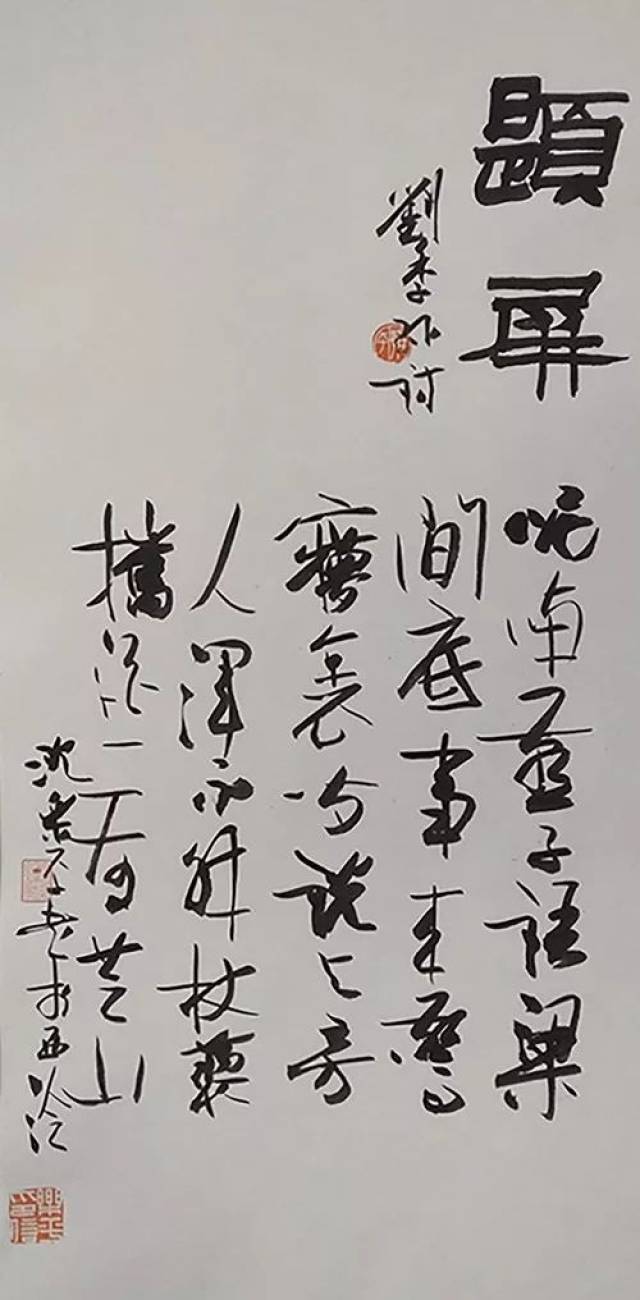 題屏
劉季孫詩
呢喃燕子語梁
間底事來驚
夢裏閒說與旁
人渾不解杖藜
攜酒看芝山
沈樂平書於西泠